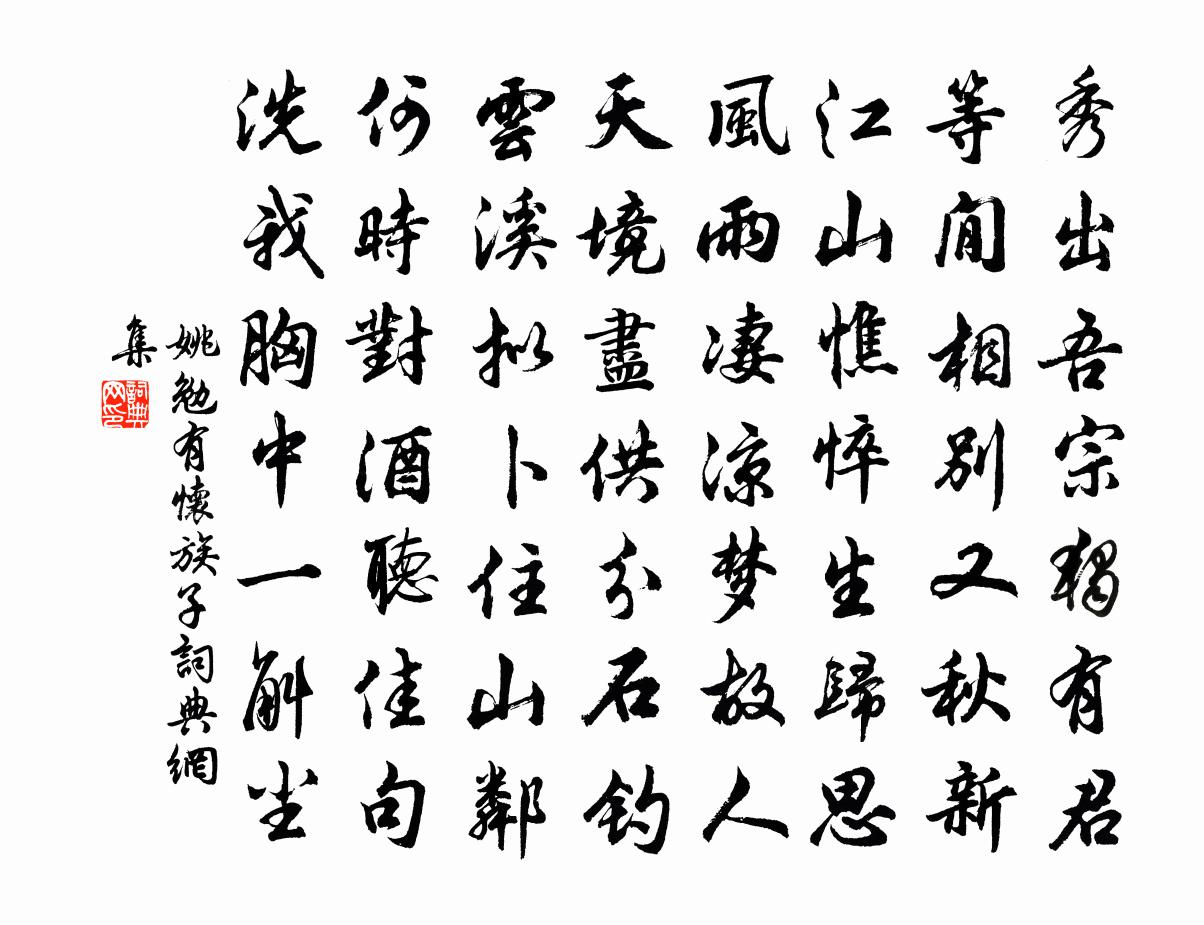 秀出吾宗獨有君
等閒相別又秋新
江山憔悴生歸思
風雨凄涼梦故人
天境盡供分石钓
雲溪拟卜住山鄰
何時對酒聽佳句
洗我胸中一斛尘
姚勉有懷族子詞典網
集
詞典
网印